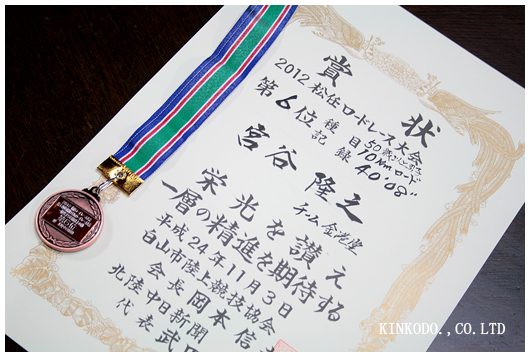 賞状
2012 松任ロードレース大会
第6位
種目 50歳以上男子
10Kmロード
記録 40'08"
宮谷 隆之
チーム金光堂
栄光を讃え
一層の精進を期待する
平成24年11月3日
白山市陸上競技協会
会長 岡本信
北陸中日新聞
代表 武田
KINKODO.,CO.LTD